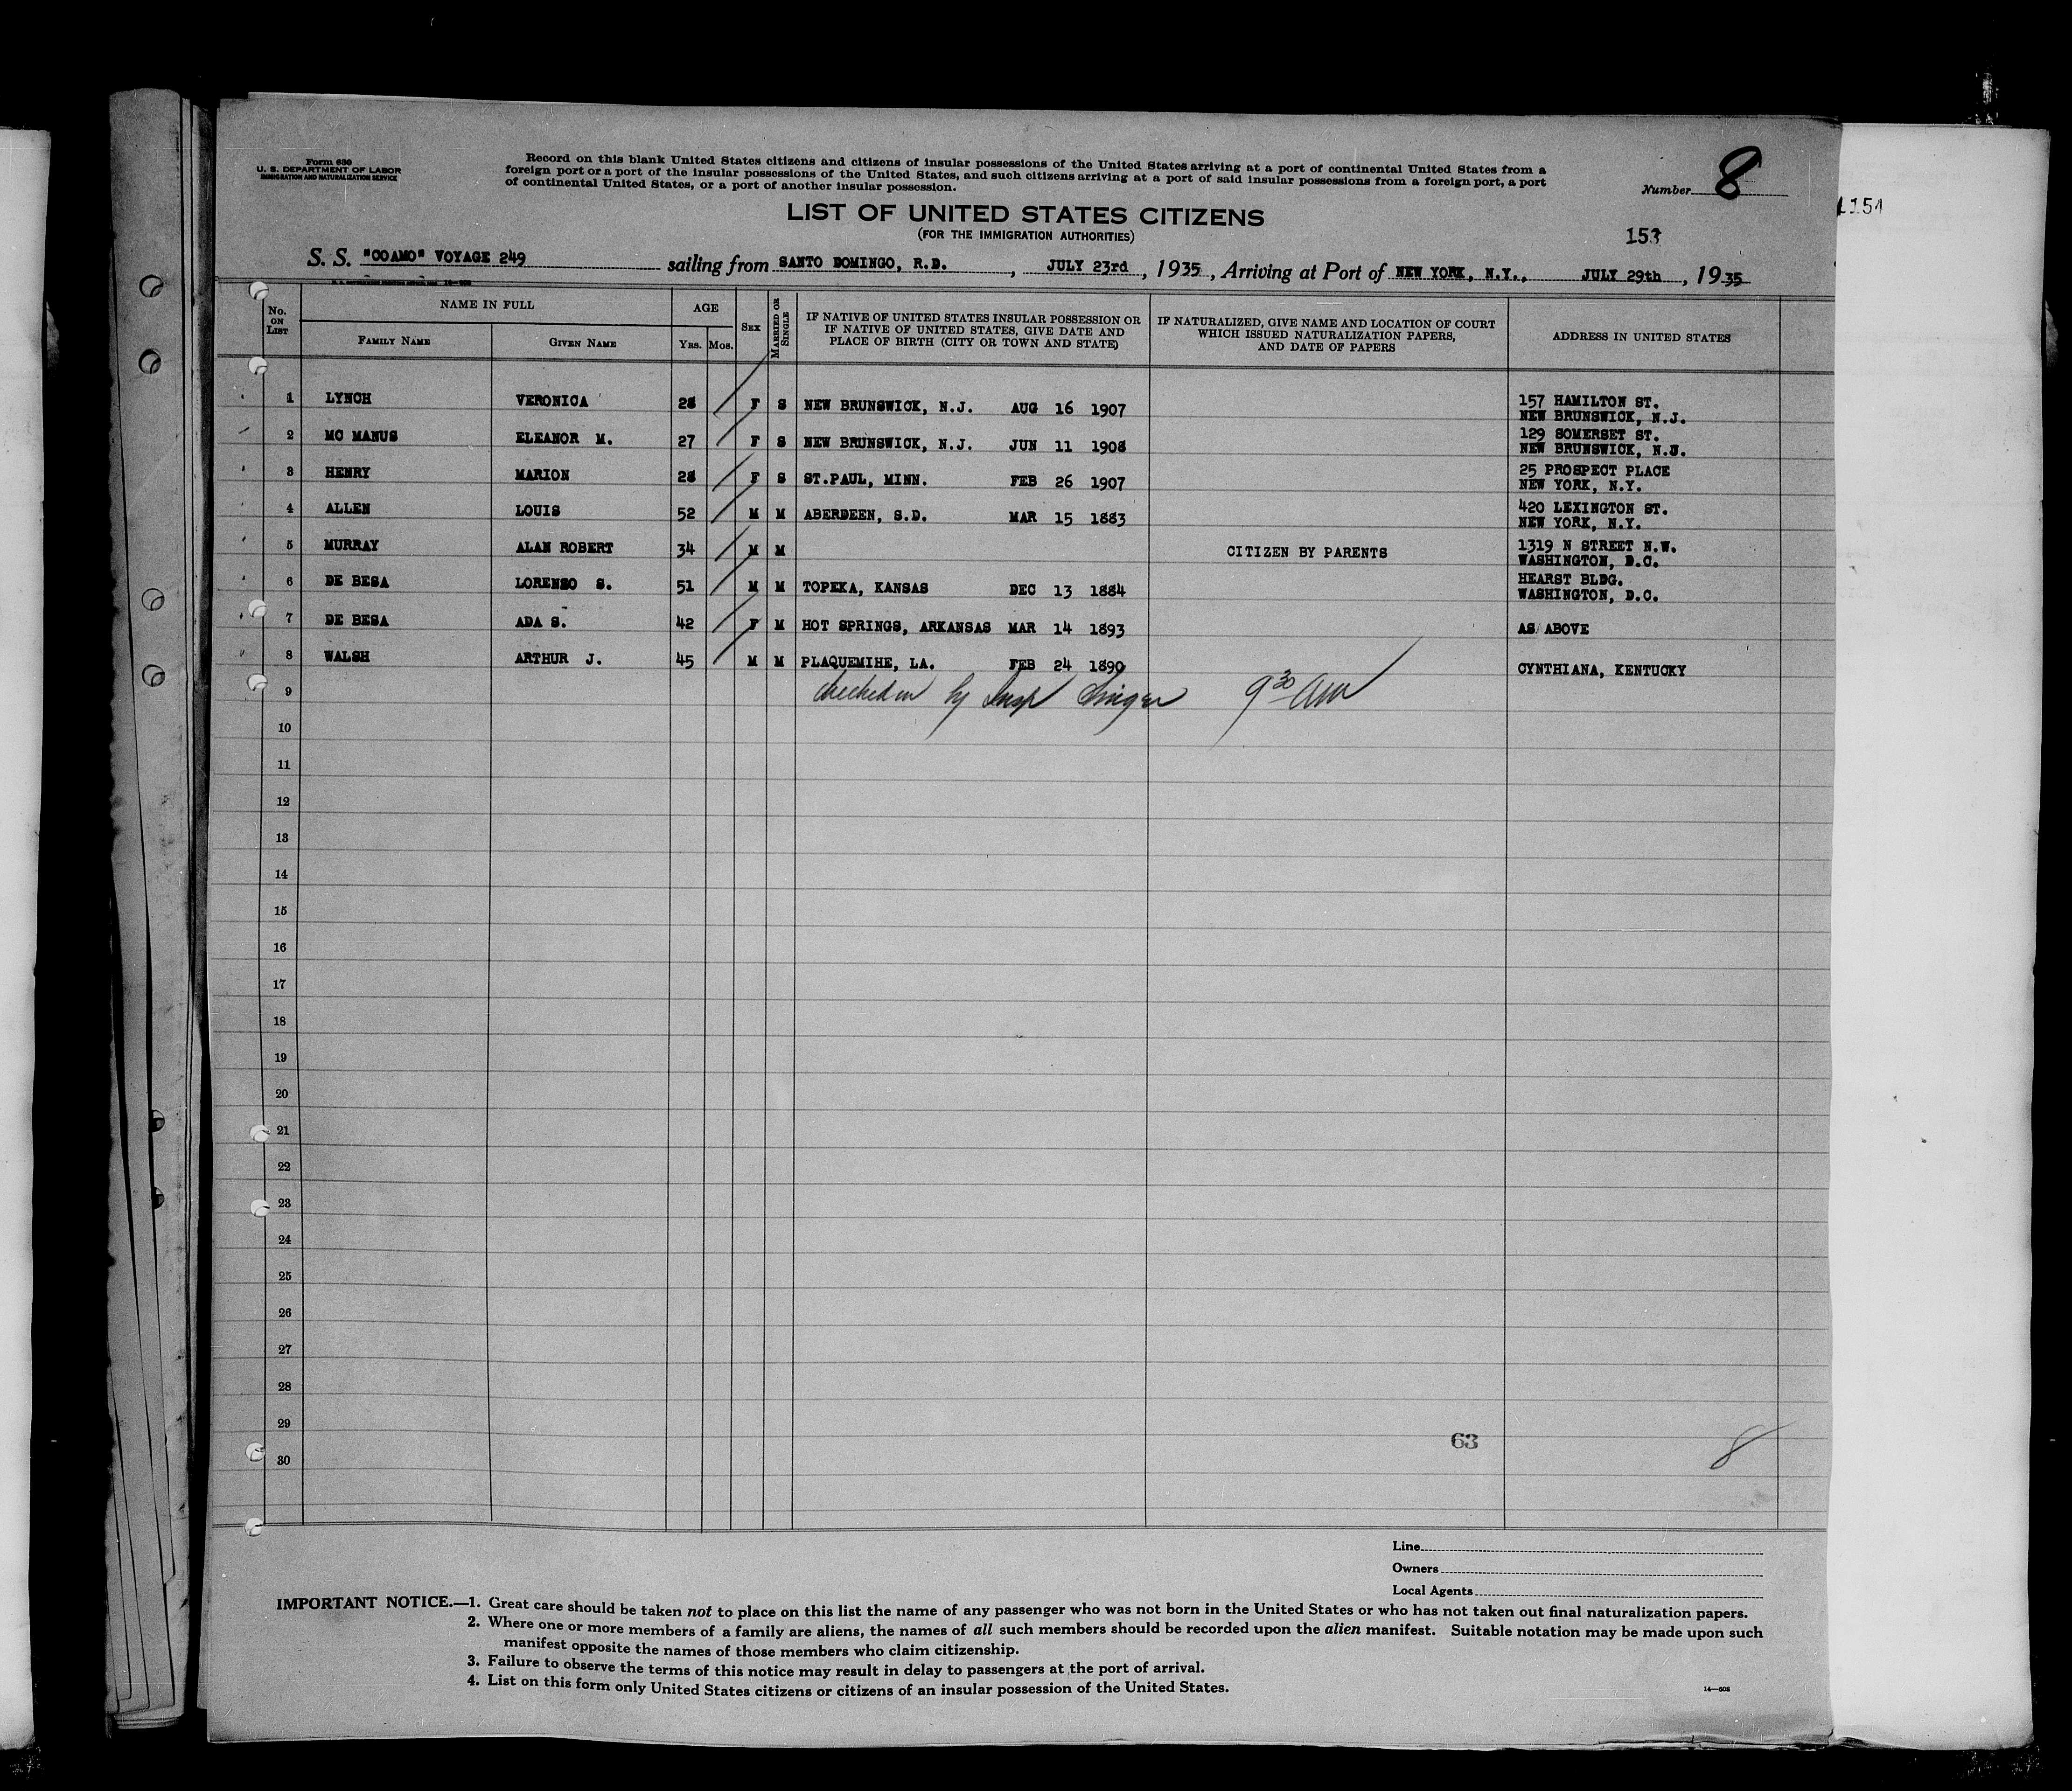 Form 630
U. S. DEPARTMENT OF LABOR
IMMIGRATION AND NATURALIZATION SERVICE
Record on this blank United States citizens and citizens of insular possessions of the United States arriving at a port of continental United States from a
foreign port or a port of the insular possessions of the United States, and such citizens arriving at a port of said insular possessions from a foreign port, a port
of continental United States, or a port of another insular possession.
Number 8
1151
LIST OF UNITED STATES CITIZENS
(FOR THE IMMIGRATION AUTHORITIES)
153
S. S. "COAMO" VOYAGE 249 sailing from SANTO DOMINGO, R.D. , JULY 23rd , 1935 , Arriving at Port of NEW YORK, N.Y., JULY 29th , 1935
No. ON LIST NAME IN FULL AGE SEX MARRIED OR SINGLE IF NATIVE OF UNITED STATES INSULAR POSSESSION OR IF NATIVE OF UNITED STATES, GIVE DATE AND PLACE OF BIRTH (CITY OR TOWN AND STATE) IF NATURALIZED, GIVE NAME AND LOCATION OF COURT WHICH ISSUED NATURALIZATION PAPERS, AND DATE OF PAPERS ADDRESS IN UNITED STATES
FAMILY NAME GIVEN NAME YRS. MOS.
1 LYNCH VERONICA 28 F S NEW BRUNSWICK, N.J. AUG 16 1907 157 HAMILTON ST.
NEW BRUNSWICK, N.J.
2 MC MANUS ELEANOR M. 27 F S NEW BRUNSWICK, N.J. JUN 11 1908 129 SOMERSET ST.
NEW BRUNSWICK, N.J.
3 HENRY MARION 28 F S ST.PAUL, MINN. FEB 26 1907 25 PROSPECT PLACE
NEW YORK, N.Y.
4 ALLEN LOUIS 52 M M ABERDEEN, S.D. MAR 15 1883 420 LEXINGTON ST.
NEW YORK, N.Y.
5 MURRAY ALAN ROBERT 34 M M CITIZEN BY PARENTS 1319 N STREET N.W.
WASHINGTON, D.C.
6 DE BESA LORENZO S. 51 M M TOPEKA, KANSAS DEC 13 1884 HEARST BLDG.
WASHINGTON, D.C.
7 DE BESA ADA S. 42 F M HOT SPRINGS, ARKANSAS MAR 14 1893 AS ABOVE
8 WALSH ARTHUR J. 45 M M PLAQUEMIHE, LA. FEB 24 1890 CYNTHIANA, KENTUCKY
9 checked in by Insp 9 30 AM
10
11
12
13
14
15
16
17
18
19
20
21
22
23
24
25
26
27
28
29
63 8
30
Line
Owners
Local Agents
IMPORTANT NOTICE.—1. Great care should be taken not to place on this list the name of any passenger who was not born in the United States or who has not taken out final naturalization papers.
2. Where one or more members of a family are aliens, the names of all such members should be recorded upon the alien manifest. Suitable notation may be made upon such
manifest opposite the names of those members who claim citizenship.
3. Failure to observe the terms of this notice may result in delay to passengers at the port of arrival.
4. List on this form only United States citizens or citizens of an insular possession of the United States.